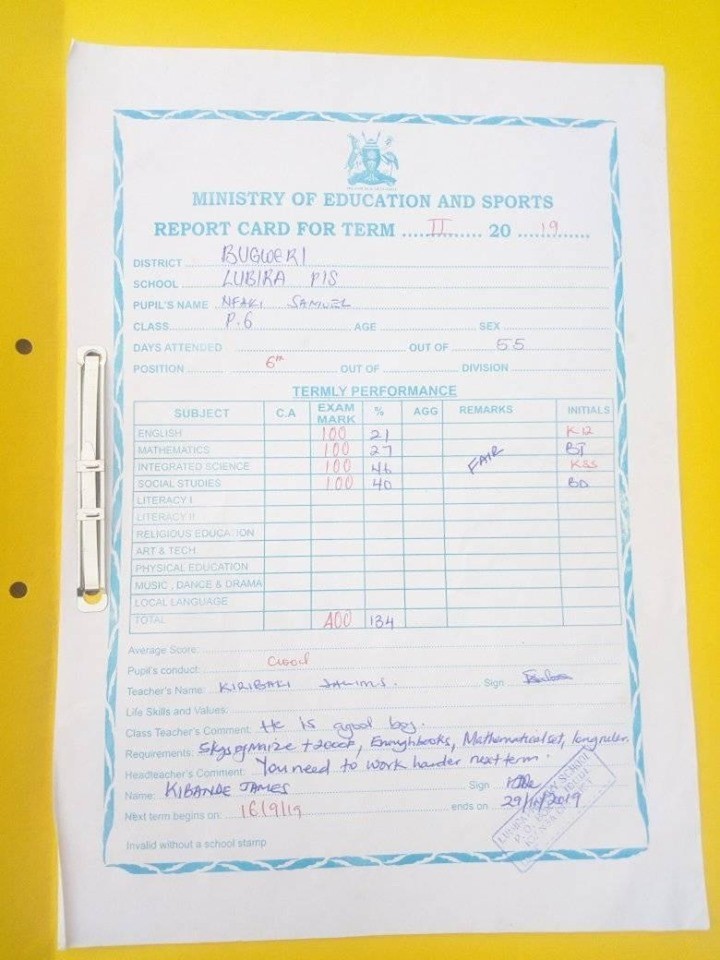 MINISTRY OF EDUCATION AND SPORTS
REPORT CARD FOR TERM II 20 19
DISTRICT BUGWERI
SCHOOL LUBIRA P/S
PUPIL'S NAME NFAKI SAMUEL
CLASS P.6 AGE SEX
DAYS ATTENDED OUT OF 55
POSITION 6th OUT OF DIVISION
TERMLY PERFORMANCE
SUBJECT C.A EXAM MARK % AGG REMARKS INITIALS
ENGLISH 100 21
MATHEMATICS 100 27 BJ
INTEGRATED SCIENCE 100 46 FAIR KSS
SOCIAL STUDIES 100 40 BD
LITERACY I
LITERACY II
RELIGIOUS EDUCATION
ART & TECH
PHYSICAL EDUCATION
MUSIC, DANCE & DRAMA
LOCAL LANGUAGE
TOTAL 400 134
Average Score:
Pupil's conduct: Good
Teacher's Name: KIRIBAKI Sign
Life Skills and Values:
Class Teacher's Comment: He is a good boy.
Requirements: 5kgs of maize + 2000/=, Enough books, Mathematical set, long ruler.
Headteacher's Comment: You need to work harder next term.
Name: KIBANDE JAMES Sign
Next term begins on: 16/9/19 ends on 29/11/2019
Invalid without a school stamp